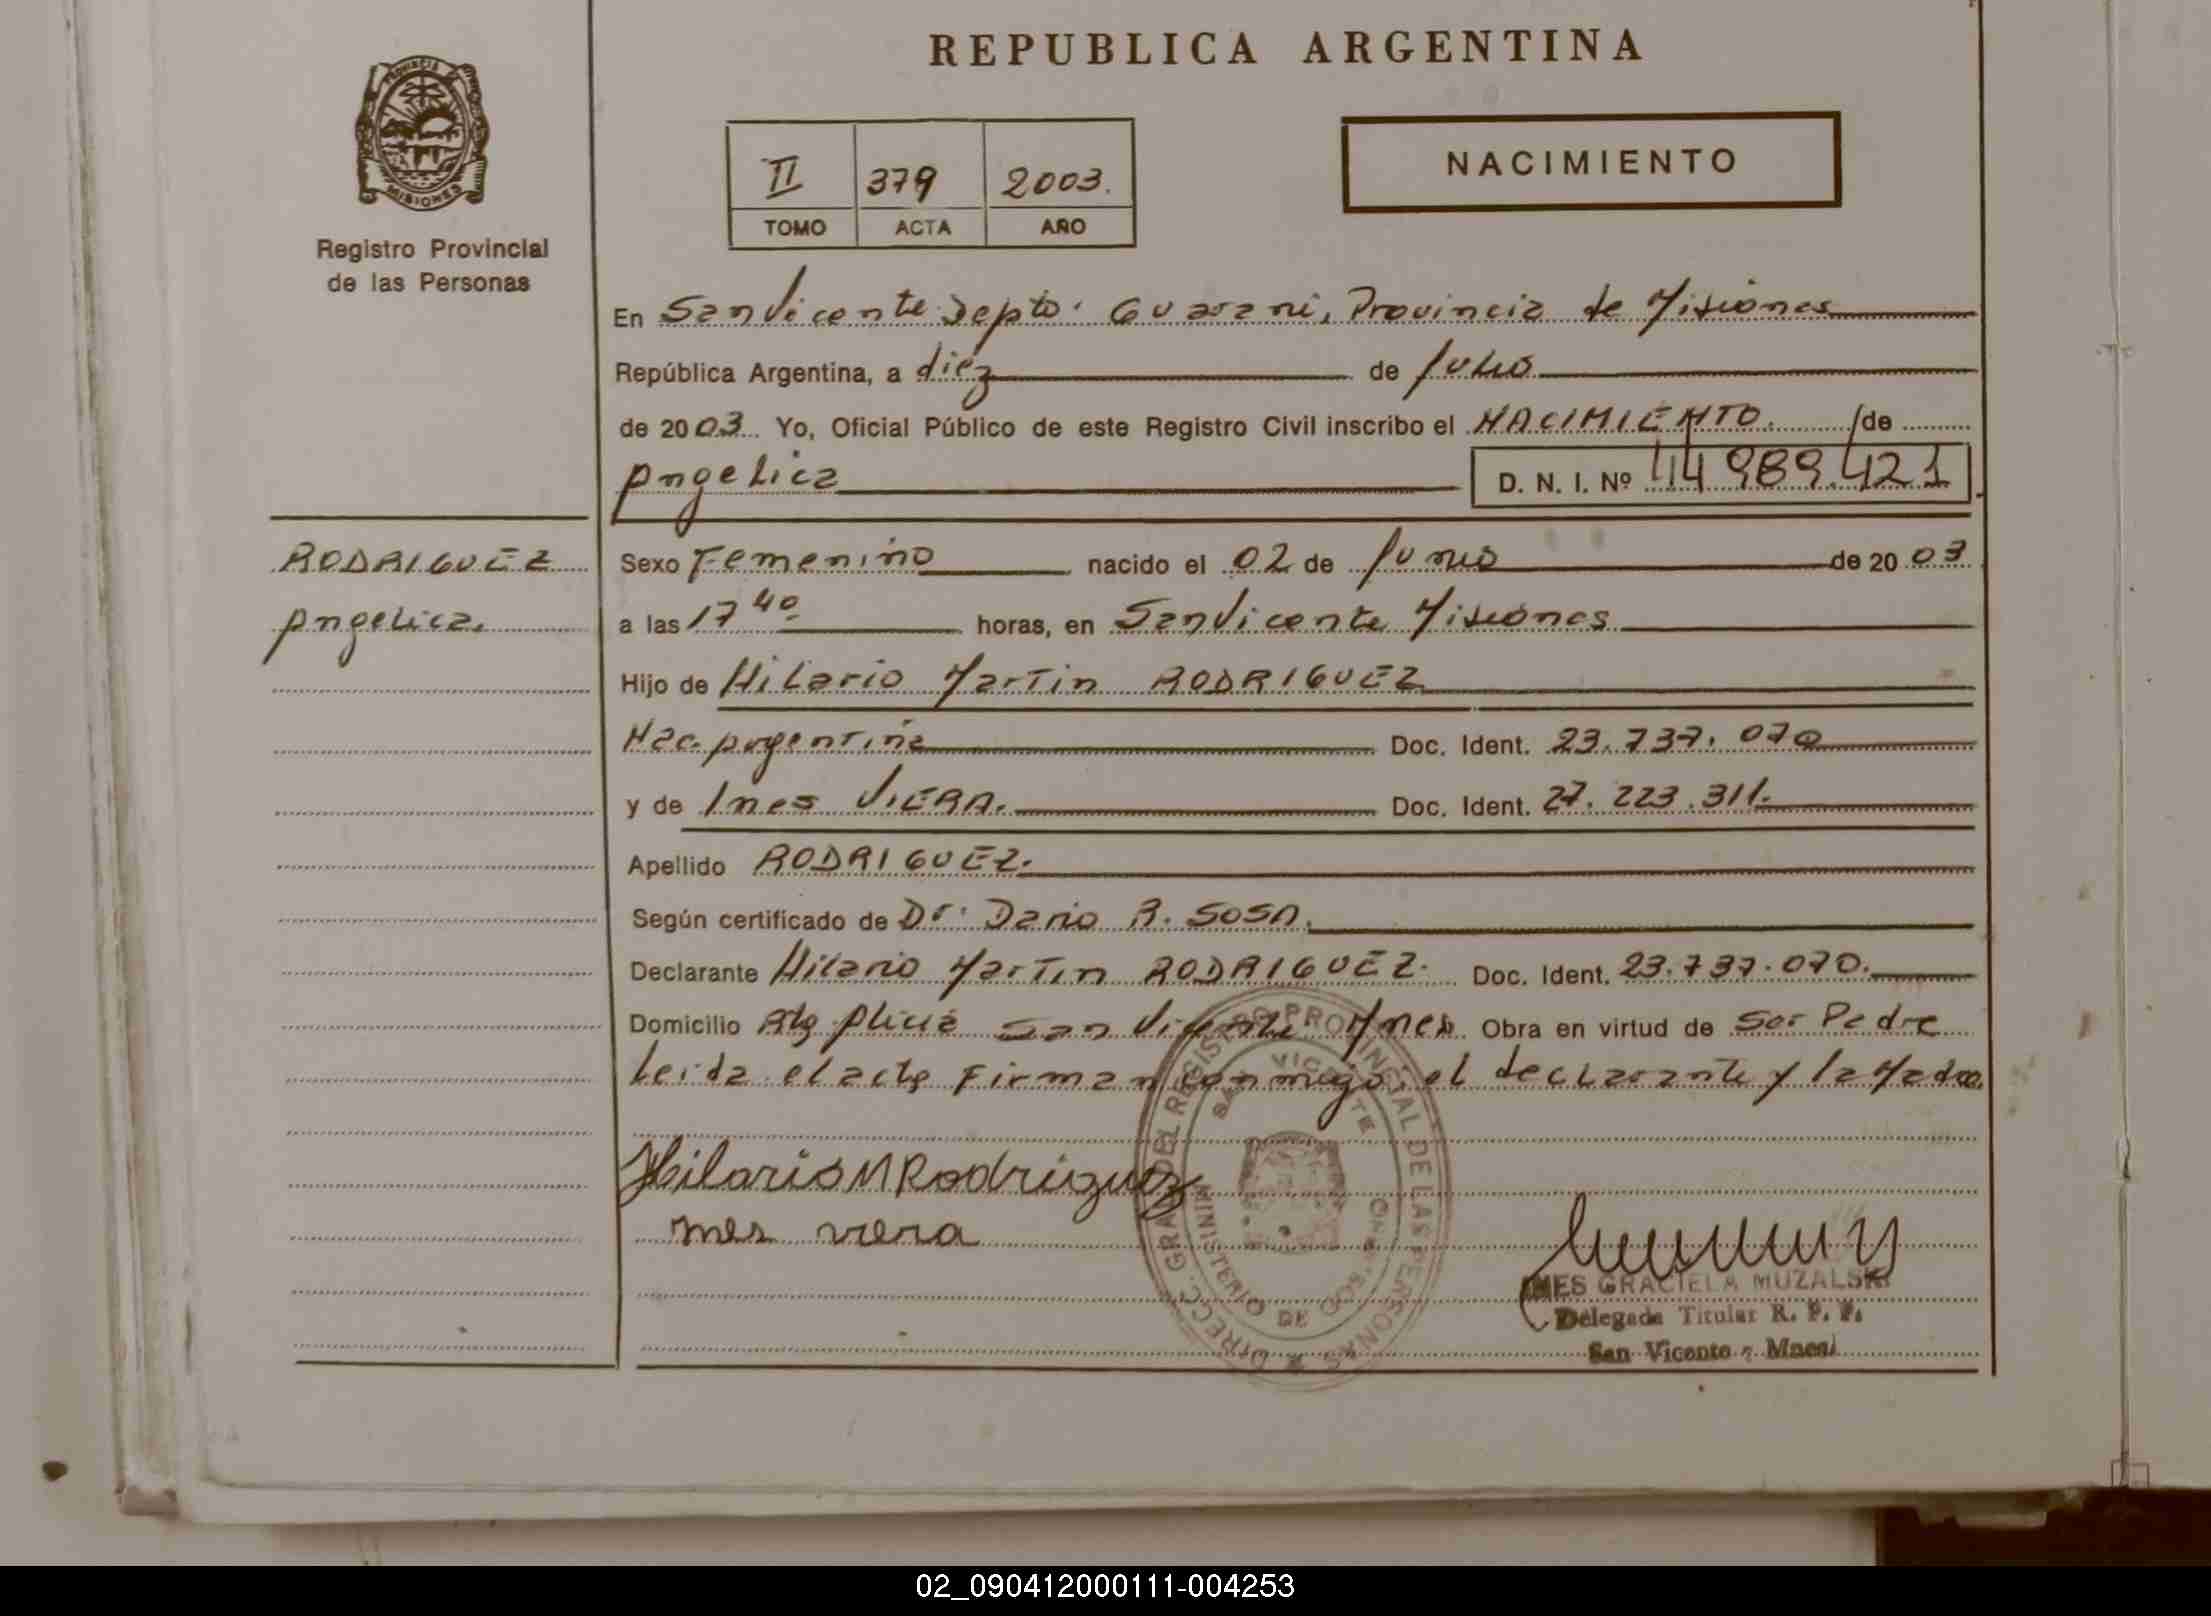 REPUBLICA ARGENTINA
PROVINCIA DE
MISIONES
Registro Provincial
de las Personas
II 379 2003.
TOMO ACTA AÑO
NACIMIENTO
En San Vicente Depto. Guarani, Provincia de Misiones
República Argentina, a diez de Julio
de 2003 Yo, Oficial Público de este Registro Civil inscribo el NACIMIENTO. /de
Angelica D. N. I. Nº 44 989.421
RODRIGUEZ
Angelica.
Sexo Femenino nacido el 02 de Junio de 2003
a las 17 40 horas, en San Vicente Misiones
Hijo de Hilario Martin RODRIGUEZ
Nac. Argentina Doc. Ident. 23.737.070
y de Ines VIERA. Doc. Ident. 27.223.311.
Apellido RODRIGUEZ.
Según certificado de Dr. Dario R. SOSA.
Declarante Hilario Martin RODRIGUEZ. Doc. Ident. 23.737.070.
Domicilio San Vicente Mnes Obra en virtud de Ser Padre
Leida el acta Firman conmigo el declarante y la Madre
Hilario M Rodriguez
Ines viera
DIRECC. GRAL DEL REGISTRO PROVINCIAL DE LAS PERSONAS
SAN VICENTE
MINISTERIO DE GOBIERNO
INES GRACIELA MUZALSKI
Delegada Titular R. P. P.
San Vicente - Mnes
02_090412000111-004253